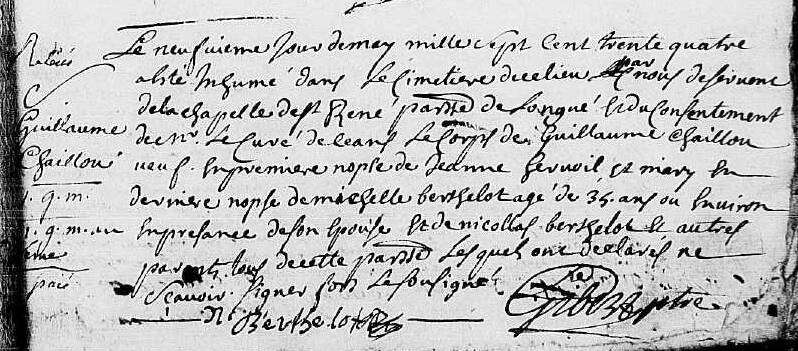 Le neufvieme Jour de may mille Sept Cent trente quatre
a este Inhumé dans Le Cimetiere de ce lieu par nous deservant
Guillaume
Chaillou
de la chapelle de st René parsse de Longué Et du Consentement
de Mr. Le Curé de ceans Le Corps de Guillaume Chaillou
veuf En premiere nopse de Jeanne et mary En
derniere nopse de michelle berthelot agé de 35 ans ou Environ
En presance de son Epouse Et de nicollas berthelot Et autres
parents tous de cette parsse Lesquels ont declarés ne
Sçavoir Signer fors Le Sousigné
N Berthelot